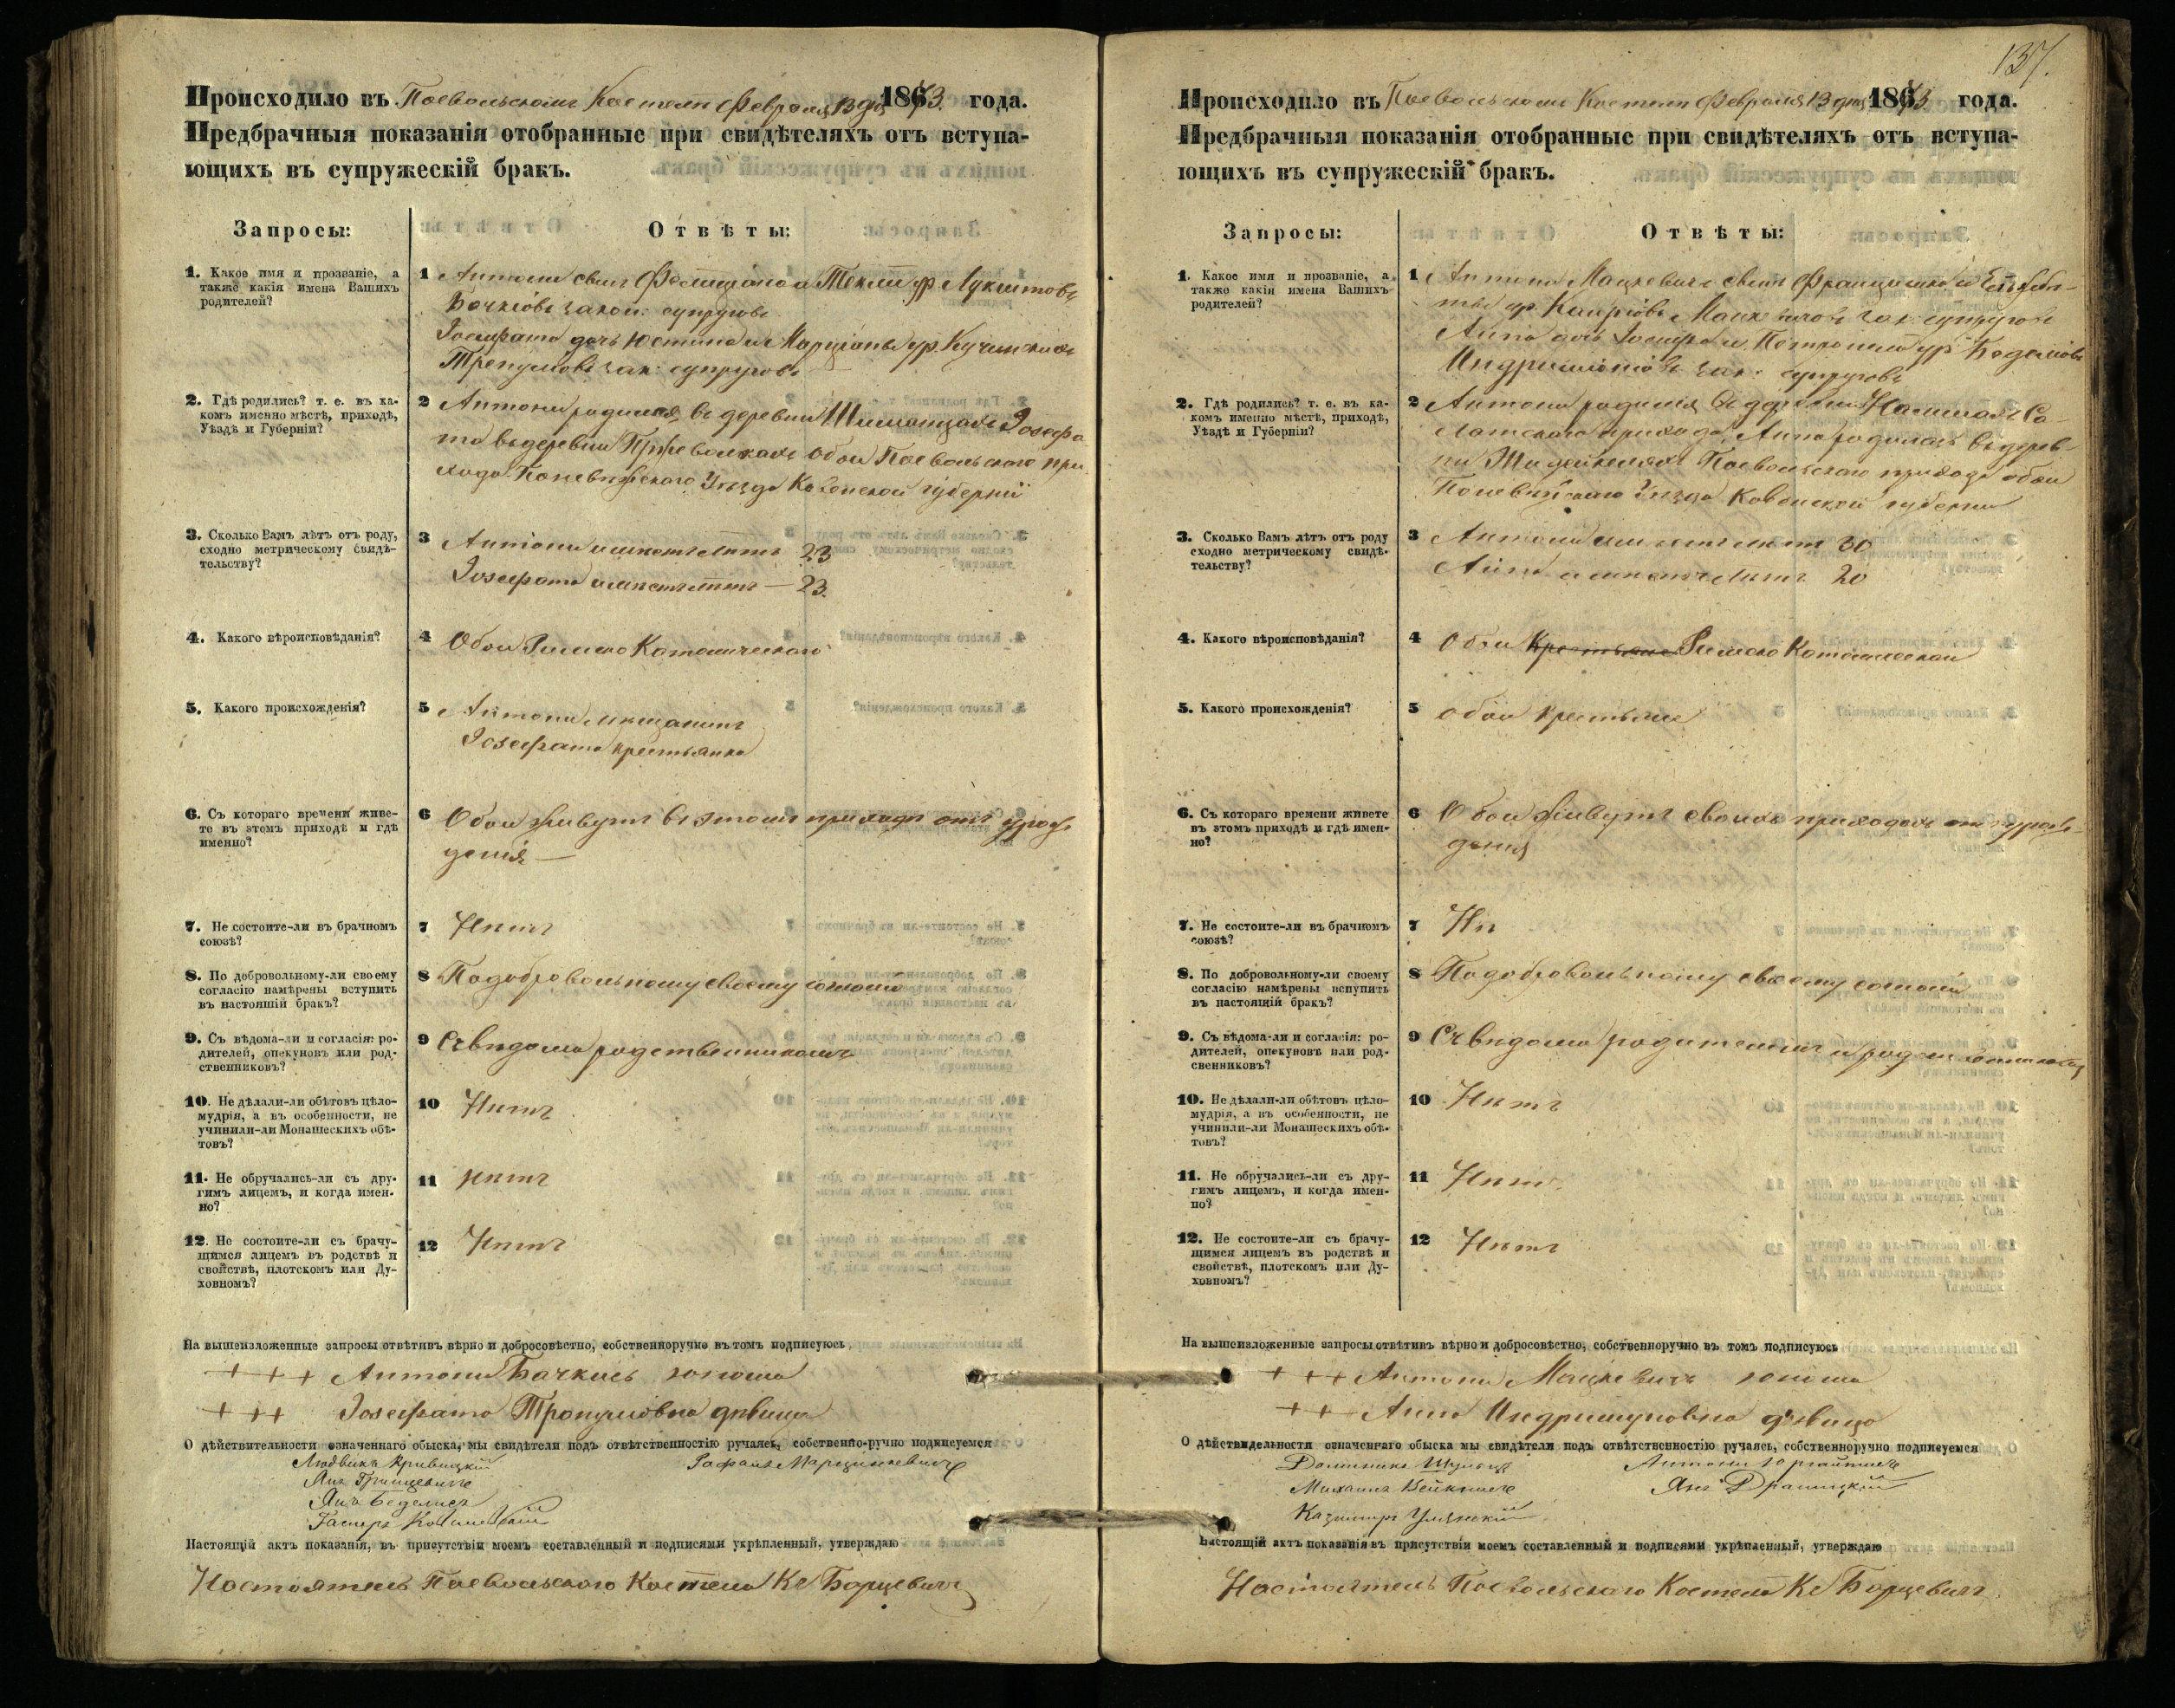 Происходило въ Поевольскомъ Костелѣ Февраля 13 дня 1863. года.
Предбрачныя показанія отобранные при свидѣтеляхъ отъ вступа-
ющихъ въ супружескій бракъ.
Запросы:
Отвѣты:
1. Какое имя и прозваніе, а
также какія имена Вашихъ
родителей?
1 Антони сынъ Фелиціана и Текли ур.
закон: супруговъ
Іозефата дочь Юстина и Марціаны ур.
зак: супруговъ
2. Гдѣ родились? т. е. въ ка-
комъ именно мѣстѣ, приходѣ,
Уѣздѣ и Губерніи?
2 Антони родился въ деревни Шиманцахъ Іозефа
та въ деревни обои Поевольскаго при
хода Поневѣжскаго Уѣзда Ковенской губерніи
3. Сколько Вамъ лѣтъ отъ роду,
сходно метрическому свидѣ-
тельству?
3 Антони имѣетъ лѣтъ 23
Іозефата имѣетъ лѣтъ — 23.
4. Какого вѣроисповѣданія?
4 Обои Римско Католическаго
5. Какого происхожденія?
5 Антони мѣщанинъ
Іозефата крестьянка
6. Съ котораго времени живе-
те въ этомъ приходѣ и гдѣ
именно?
6 Обои живутъ въ этомъ приходѣ отъ урож
денія —
7. Не состоите-ли въ брачномъ
союзѣ?
7 Нѣтъ
8. По добровольному-ли своему
согласію намѣрены вступить
въ настоящій бракъ?
8 По добровольному своему согласію
9. Съ вѣдома-ли и согласія: ро-
дителей, опекуновъ или род-
ственниковъ?
9 Съ вѣдома родственниковъ
10. Не дѣлали-ли обѣтовъ цѣло-
мудрія, а въ особенности, не
учинили-ли Монашескихъ обѣ-
товъ?
10 Нѣтъ
11. Не обручались-ли съ дру-
гимъ лицемъ, и когда имен-
но?
11 Нѣтъ
12. Не состоите-ли съ брачу-
щимся лицемъ въ родствѣ и
свойствѣ, плотскомъ или Ду-
ховномъ?
12 Нѣтъ
На вышеизложенные запросы отвѣтивъ вѣрно и добросовѣстно, собственноручно въ томъ подписуюсь
+++ Антони Бачкисъ юноша
+++ Іозефата дѣвица
О дѣйствительности означеннаго обыска, мы свидѣтели подъ отвѣтственностію ручаясь, собственно-ручно подписуемся
Людвикъ Кривицкій
Рафаилъ Марцинкевичъ
Янъ Гринцевичъ
Янъ Беделисъ
Каспоръ
Настоящій актъ показанія, въ присутствіи моемъ составленный и подписями укрѣпленный, утверждаю
Настоятель Поевольскаго Костела Кс Борцевичъ
137.
Происходило въ Поевольскомъ Костелѣ Февраля 13 дня 1863. года.
Предбрачныя показанія отобранные при свидѣтеляхъ отъ вступа-
ющихъ въ супружескій бракъ.
Запросы:
Отвѣты:
1. Какое имя и прозваніе, а
также какія имена Вашихъ
родителей?
1 Антони Мацкевичъ сынъ Францишка и Ельжбе-
ты ур. Мацкевичовъ зак: супруговъ
Анна дочь Іозефа и Петронели ур.
зак: супруговъ
2. Гдѣ родились? т. е. въ ка-
комъ именно мѣстѣ, приходѣ,
Уѣздѣ и Губерніи?
2 Антони родился въ деревни Са-
латскаго прихода, Анна родилась въ дерев-
ни Поевольскаго прихода обои
Поневѣжскаго Уѣзда Ковенской губерни
3. Сколько Вамъ лѣтъ отъ роду
сходно метрическому свидѣ-
тельству?
3 Антони имѣетъ лѣтъ 30
Анна имѣетъ лѣтъ 20
4. Какого вѣроисповѣданія?
4 Обои Крестьяне Римско Католической
5. Какого происхожденія?
5 Обои крестьяне
6. Съ котораго времени живете
въ этомъ приходѣ и гдѣ имен-
но?
6 Обои живутъ своихъ приходахъ отъ урож-
дения
7. Не состоите-ли въ брачномъ
союзѣ?
7 Нѣ
8. По добровольному-ли своему
согласію намѣрены вспупить
въ настоящій бракъ?
8 По добровольному своему согласію
9. Съ вѣдома-ли и согласія: ро-
дителей, опекуновъ или род-
свенниковъ?
9 Съ вѣдома родителей и
10. Не дѣлали-ли обѣтовъ цѣло-
мудрія, а въ особенности, не
учинили-ли Монашескихъ обѣ-
товъ?
10 Нѣтъ
11. Не обручались-ли съ дру-
гимъ лицемъ, и когда имен-
но?
11 Нѣтъ
12. Не состоите-ли съ брачу-
щимся лицемъ въ родствѣ и
свойствѣ, плотскомъ или Ду-
ховномъ?
12 Нѣтъ
На вышеизложенные запросы отвѣтивъ вѣрно и добросовѣстно, собственноручно въ томъ подписуюсь
+++ Антони Мацкевичъ юноша
+++ Анна Индришуновна дѣвица
О дѣйствидельности означеннаго обыска мы свидѣтели подъ отвѣтственностію ручаясь, собственноручно подписуемся
Доминикъ Шульцъ
Антони
Михаилъ
Янъ
Казимиръ
Настоящій актъ показанія въ присутствіи моемъ составленный и подписями укрѣпленный, утверждаю
Настоятель Поевольскаго Костела Кс Борцевичъ